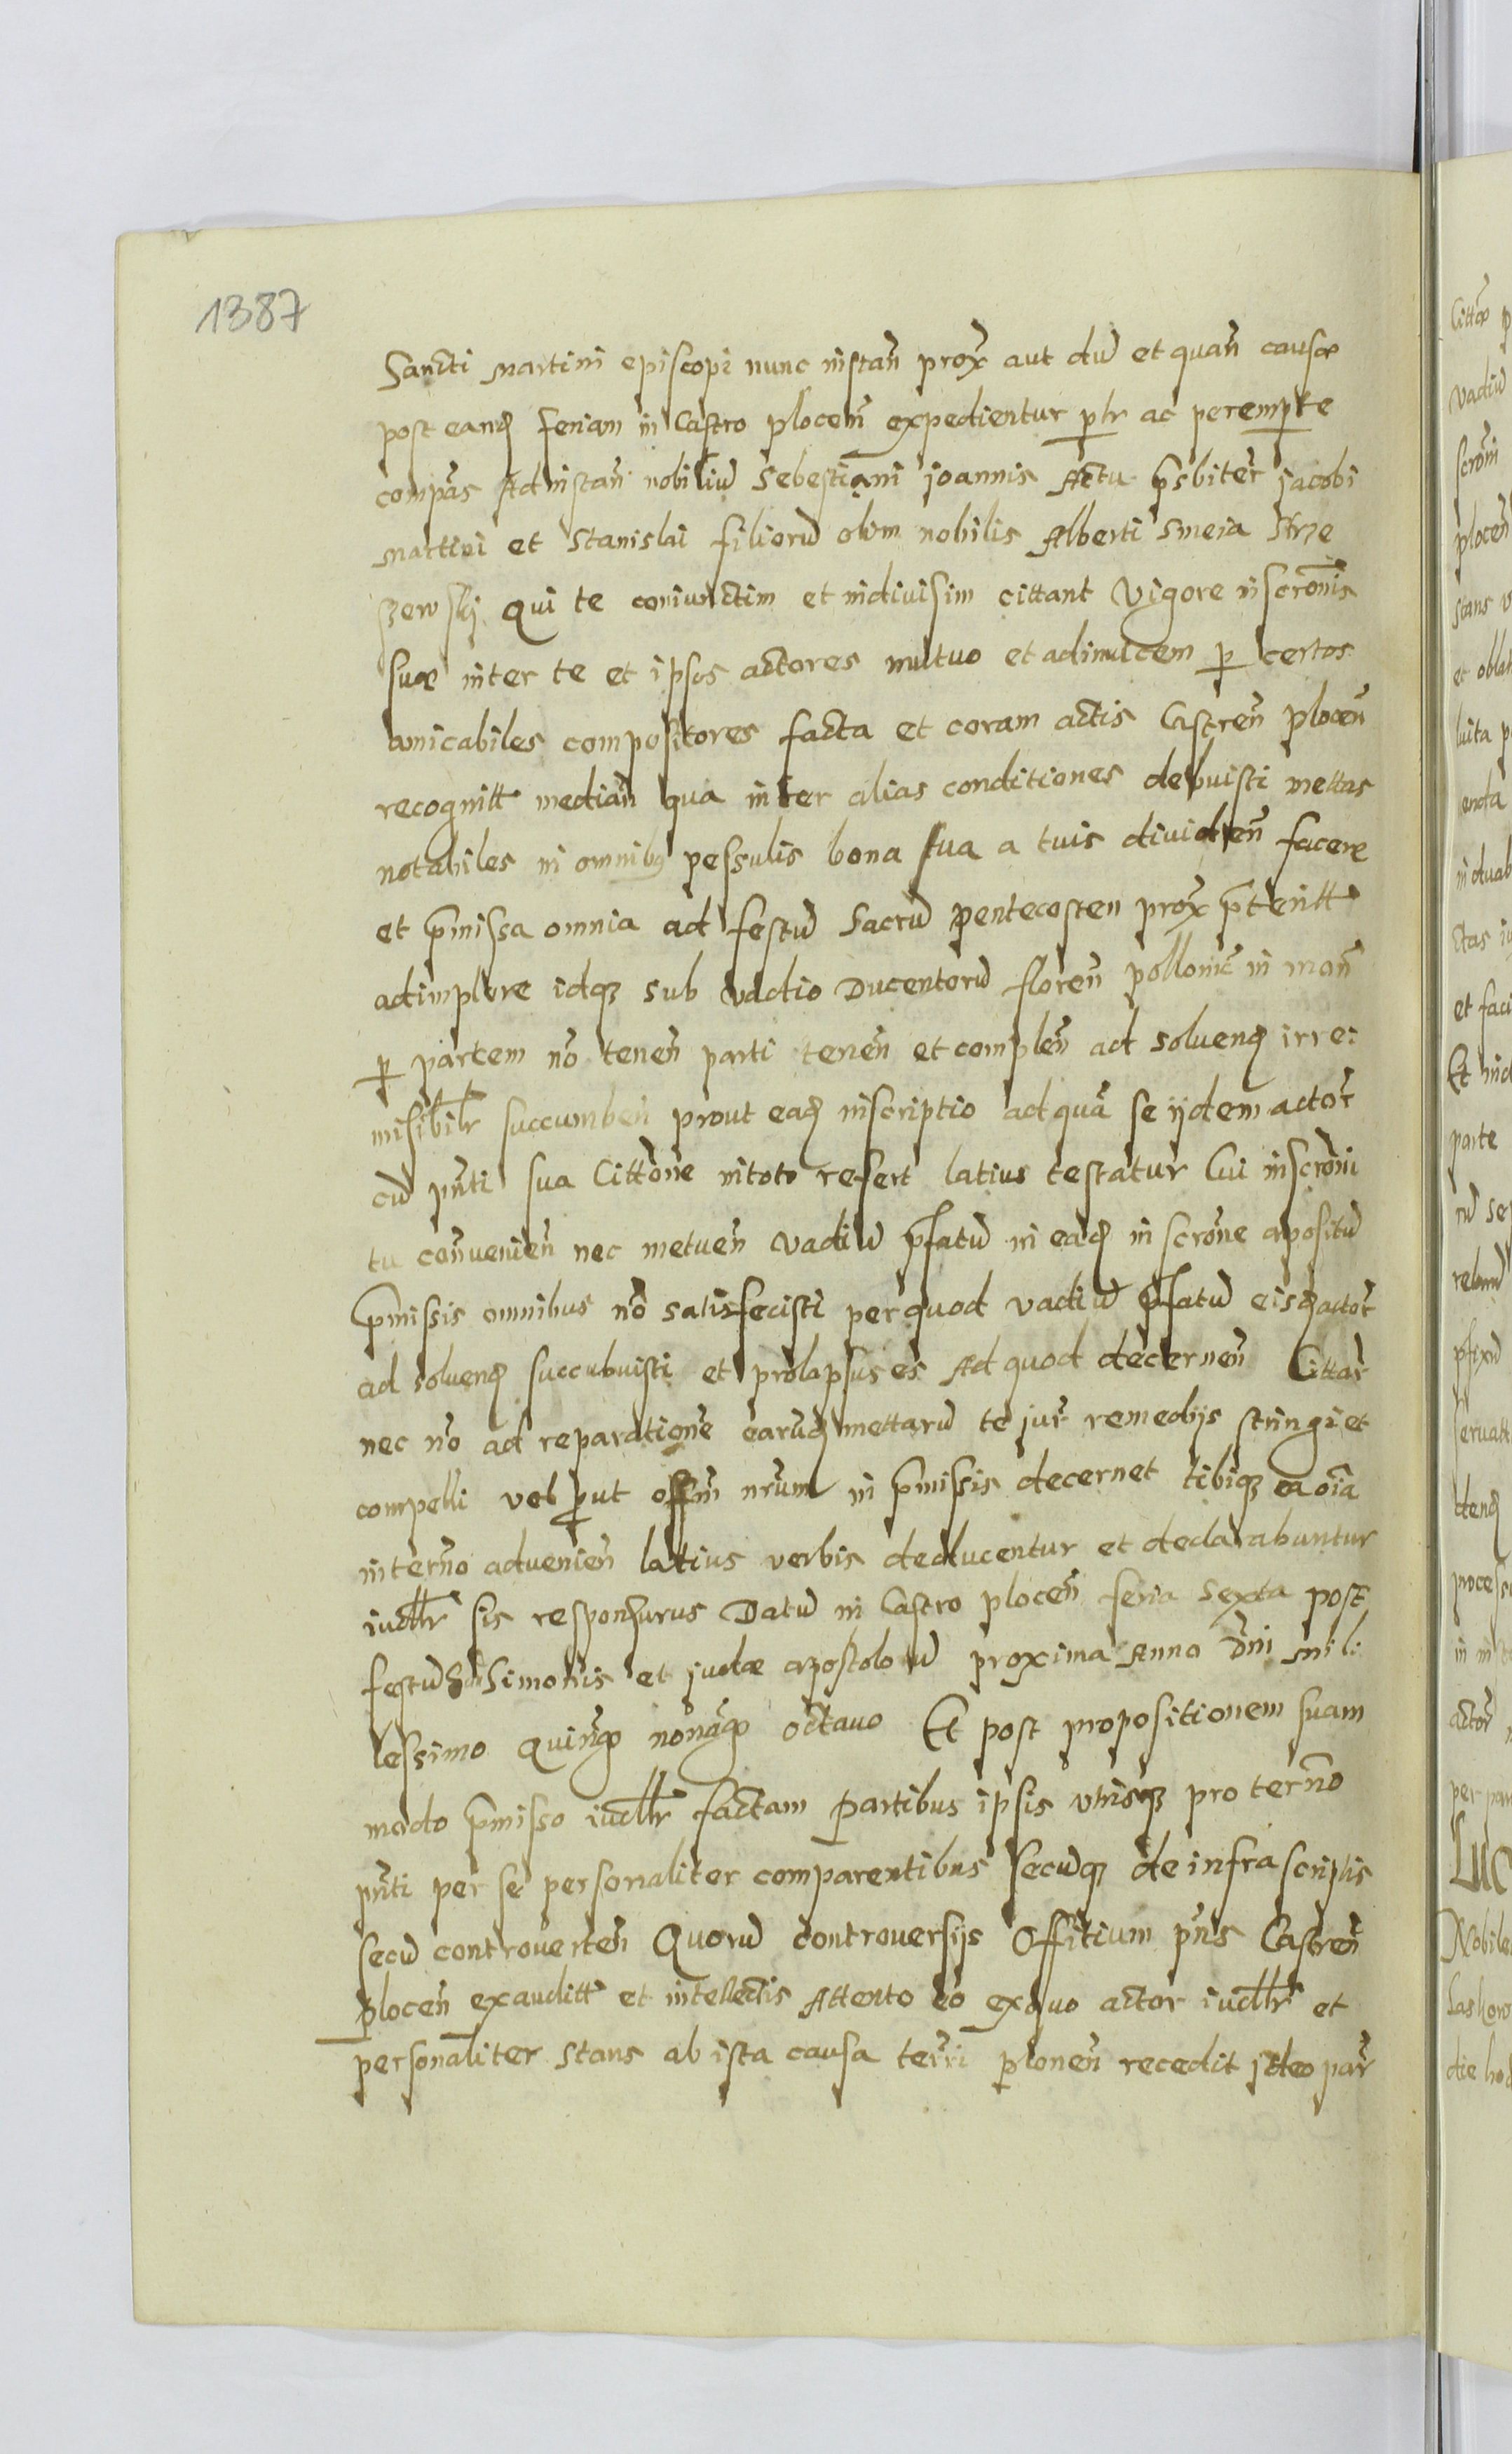 1387
Sancti Martini episcopi nunc instan̄ prox̄ aut dū et quan̄ causæ
post eand feriam in Castro plocen̄ expedientur p̱lr ac perempte
compas Ad instan̄ nobiliū Sebestiani joannis Actu p̄sbiter̄ jacobi
Martini et Stanislai filiorū olim nobilis Alberti Smeia Strze
szewskij Qui te coniunctim et indivisim cittant Vigore inscro̅nis
suæ inter te et ipsos actores mutuo et adinuicem p̱ certos
amicabiles compositores facta et coram actis Castren̄ plocen̄
recognitt median̄ qua inter alias conditiones debuisti mettas
notabiles in omnibȝ pessulis bona sua a tuis dividen̄ facere
et p̄missa omnia ad festū Sacrū pentecosten prox̄ p̄teritt
adimplere idqȝ sub vadio Ducentorū floren̄ pollonic̄ in man̄
p̱ partem nō tenen̄ parti tenen̄ et complen̄ ad soluend irre:
misibilr succumben̄ prout ead inscriptio ad quā se ijdem actor̄
cū pn̄ti sua Cittōne in toto refert latius testatur Cui inscrōni
tu conuenien̄ nec metuen̄ vadiū p̄fatū in ead inscrōne apositū
p̄missis omnibus nō satisfecisti per quod vadiū p̄fatū eisd actor̄
ad soluend succubuisti et prolapsus es Ad quod decernen̄ Cittar̄
nec nō ad reparatione earūd mettarū te jur̄ remedijs stringi et
compelli vel p̱ut offm̄ nrūm in p̄missis decernet tibiqȝ ea oīa
in tern̄o advenien̄ latius verbis deducentur et declarabuntur
iudllr̄ sis responsurus Datū in Castro plocen̄ feria Sexta post
festū S Simonis et judæ apostolorū proxima Anno Dn̄i mil:
lessimo quinḡo nonaḡo octavo Et post propositionem suam
modo p̄misso iudllr̄ factam Partibus ipsis utrisqȝ pro tern̄o
pn̄ti per se personaliter comparentibus Secūqȝ de infra scriptis
secū controverten̄ Quorū controversijs Offitium pn̄s Castren̄
plocen̄ exauditt et intellectis Attento eo ex quo actor iudllr̄ et
personaliter stans ab ista causa terr̄i p̱lonen̄ recedit ideo par̄